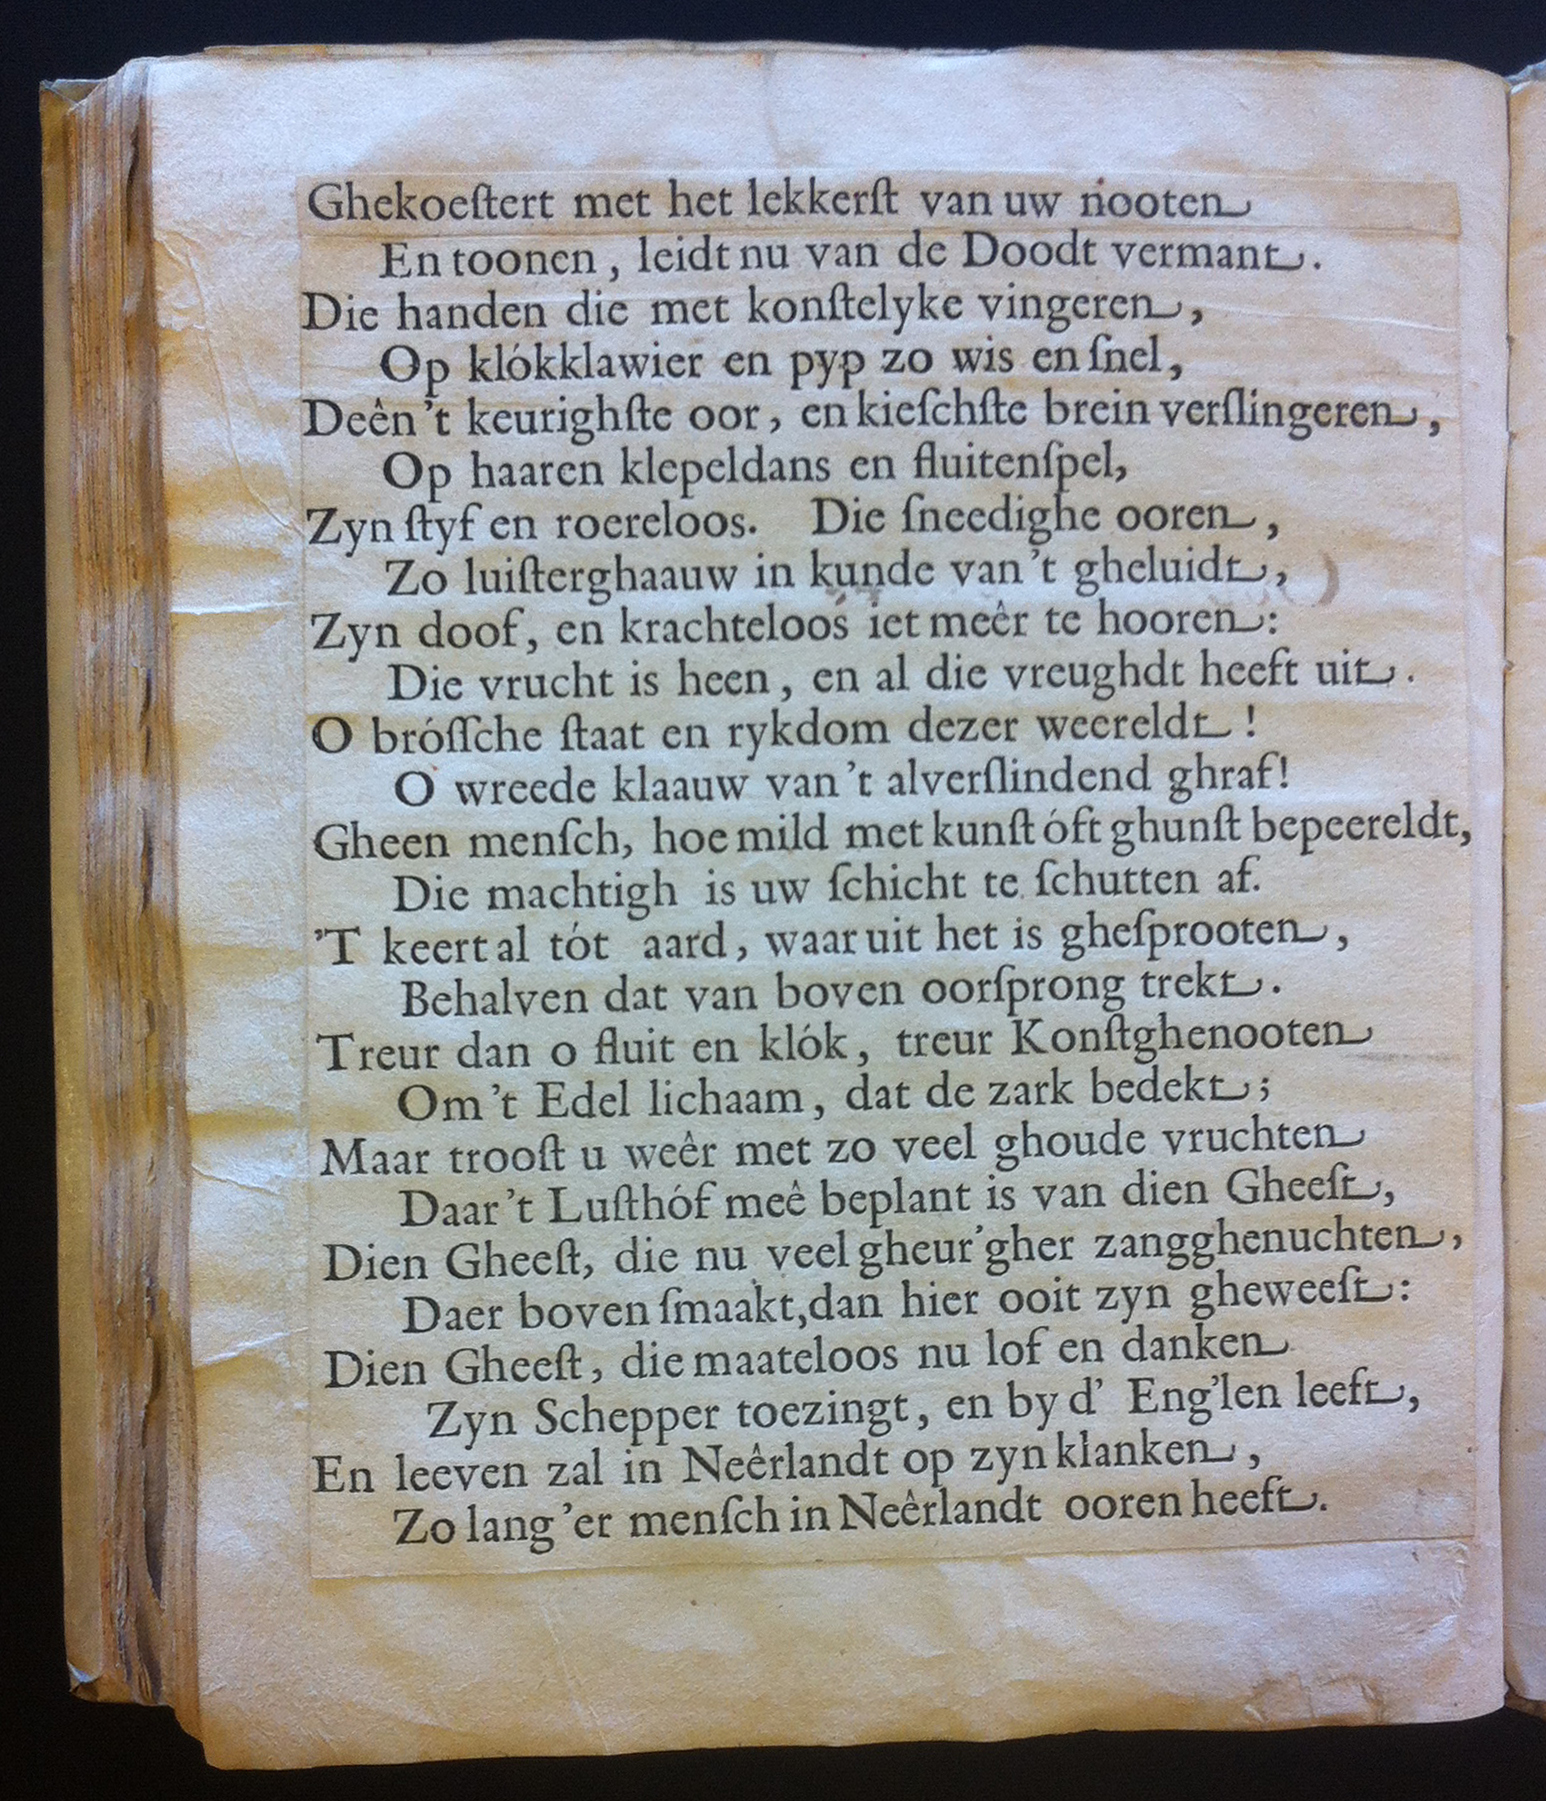 Ghekoeſtert met het lekkerſt van uw nooten
En toonen, leidt nu van de Doodt vermant.
Die handen die met konſtelyke vingeren,
Op klókklawier en pyp zo wis en ſnel,
Deên 't keurighſte oor, en kieſchſte brein verſlingeren,
Op haaren klepeldans en fluitenſpel,
Zyn ſtyf en roereloos. Die ſneedighe ooren,
Zo luiſterghaauw in kunde van 't gheluidt,
Zyn doof, en krachteloos iet meêr te hooren:
Die vrucht is heen, en al die vreughdt heeft uit.
O bróſſche ſtaat en rykdom dezer weereldt!
O wreede klaauw van 't alverſlindend ghraf!
Gheen menſch, hoe mild met kunſt óft ghunſt bepeereldt,
Die machtigh is uw ſchicht te ſchutten af.
'T keert al tót aard, waar uit het is gheſprooten,
Behalven dat van boven oorſprong trekt.
Treur dan o fluit en klók, treur Konſtghenooten
Om 't Edel lichaam, dat de zark bedekt;
Maar trooſt u weêr met zo veel ghoude vruchten
Daar 't Luſthóf meê beplant is van dien Gheeſt,
Dien Gheeſt, die nu veel gheur'gher zangghenuchten,
Daer boven ſmaakt, dan hier ooit zyn gheweeſt:
Dien Gheeſt, die maateloos nu lof en danken
Zyn Schepper toezingt, en by d' Eng'len leeft,
En leeven zal in Neêrlandt op zyn klanken,
Zo lang 'er menſch in Neêrlandt ooren heeft.